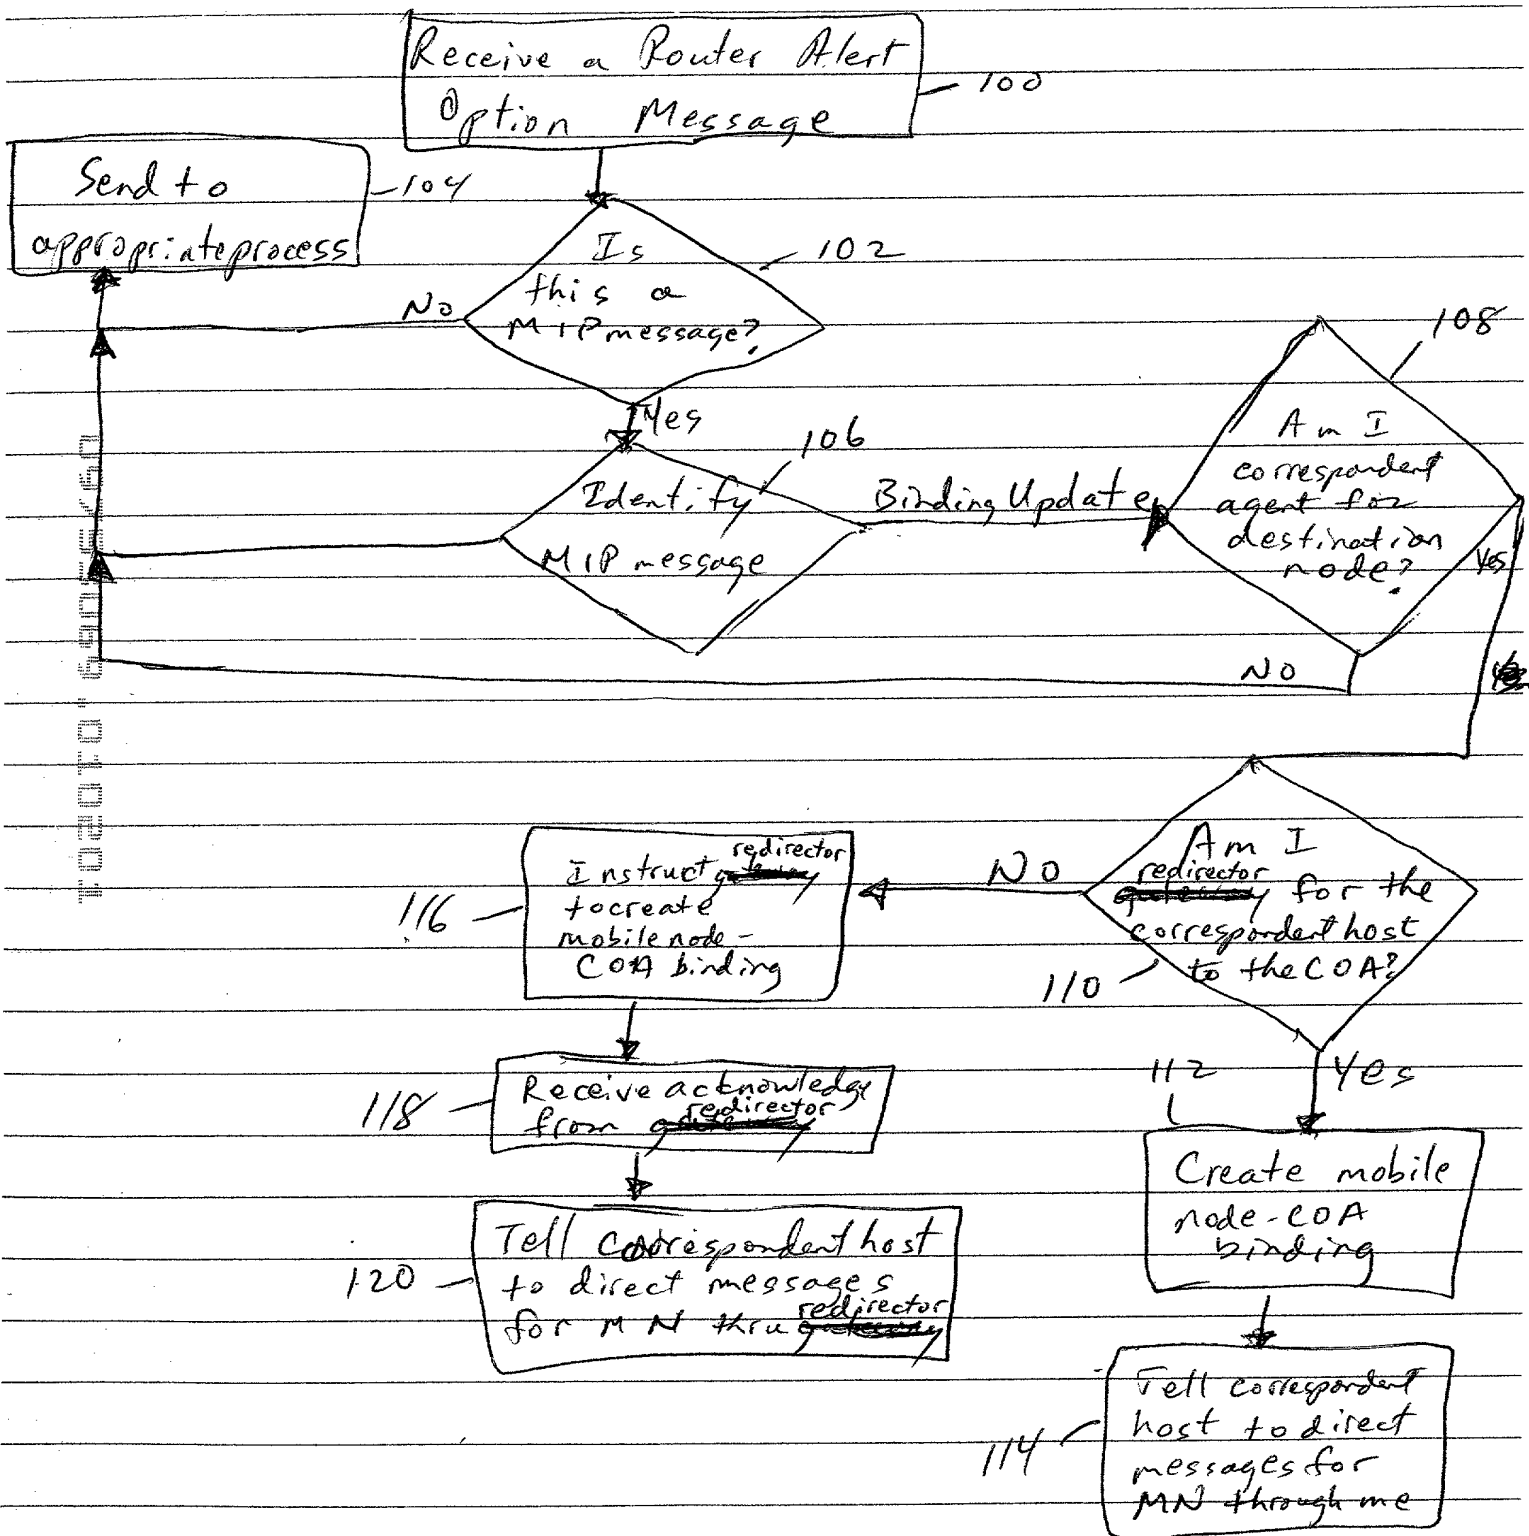 Receive a Router Alert
Option Message
100
Send to
appropriate process
104
Is
this a
MIP message?
102
No
Yes
Identify
MIP message
106
Binding Update
Am I
correspondent
agent for
destination
node?
108
Yes
No
Am I
redirector
for the
correspondent host
to the COA?
110
No
Yes
Instruct redirector
to create
mobile node-
COA binding
116
Receive acknowledge
from redirector
118
Tell correspondent host
to direct messages
for MN thru redirector
120
112
Create mobile
node-COA
binding
Tell correspondent
host to direct
messages for
MN through me
114